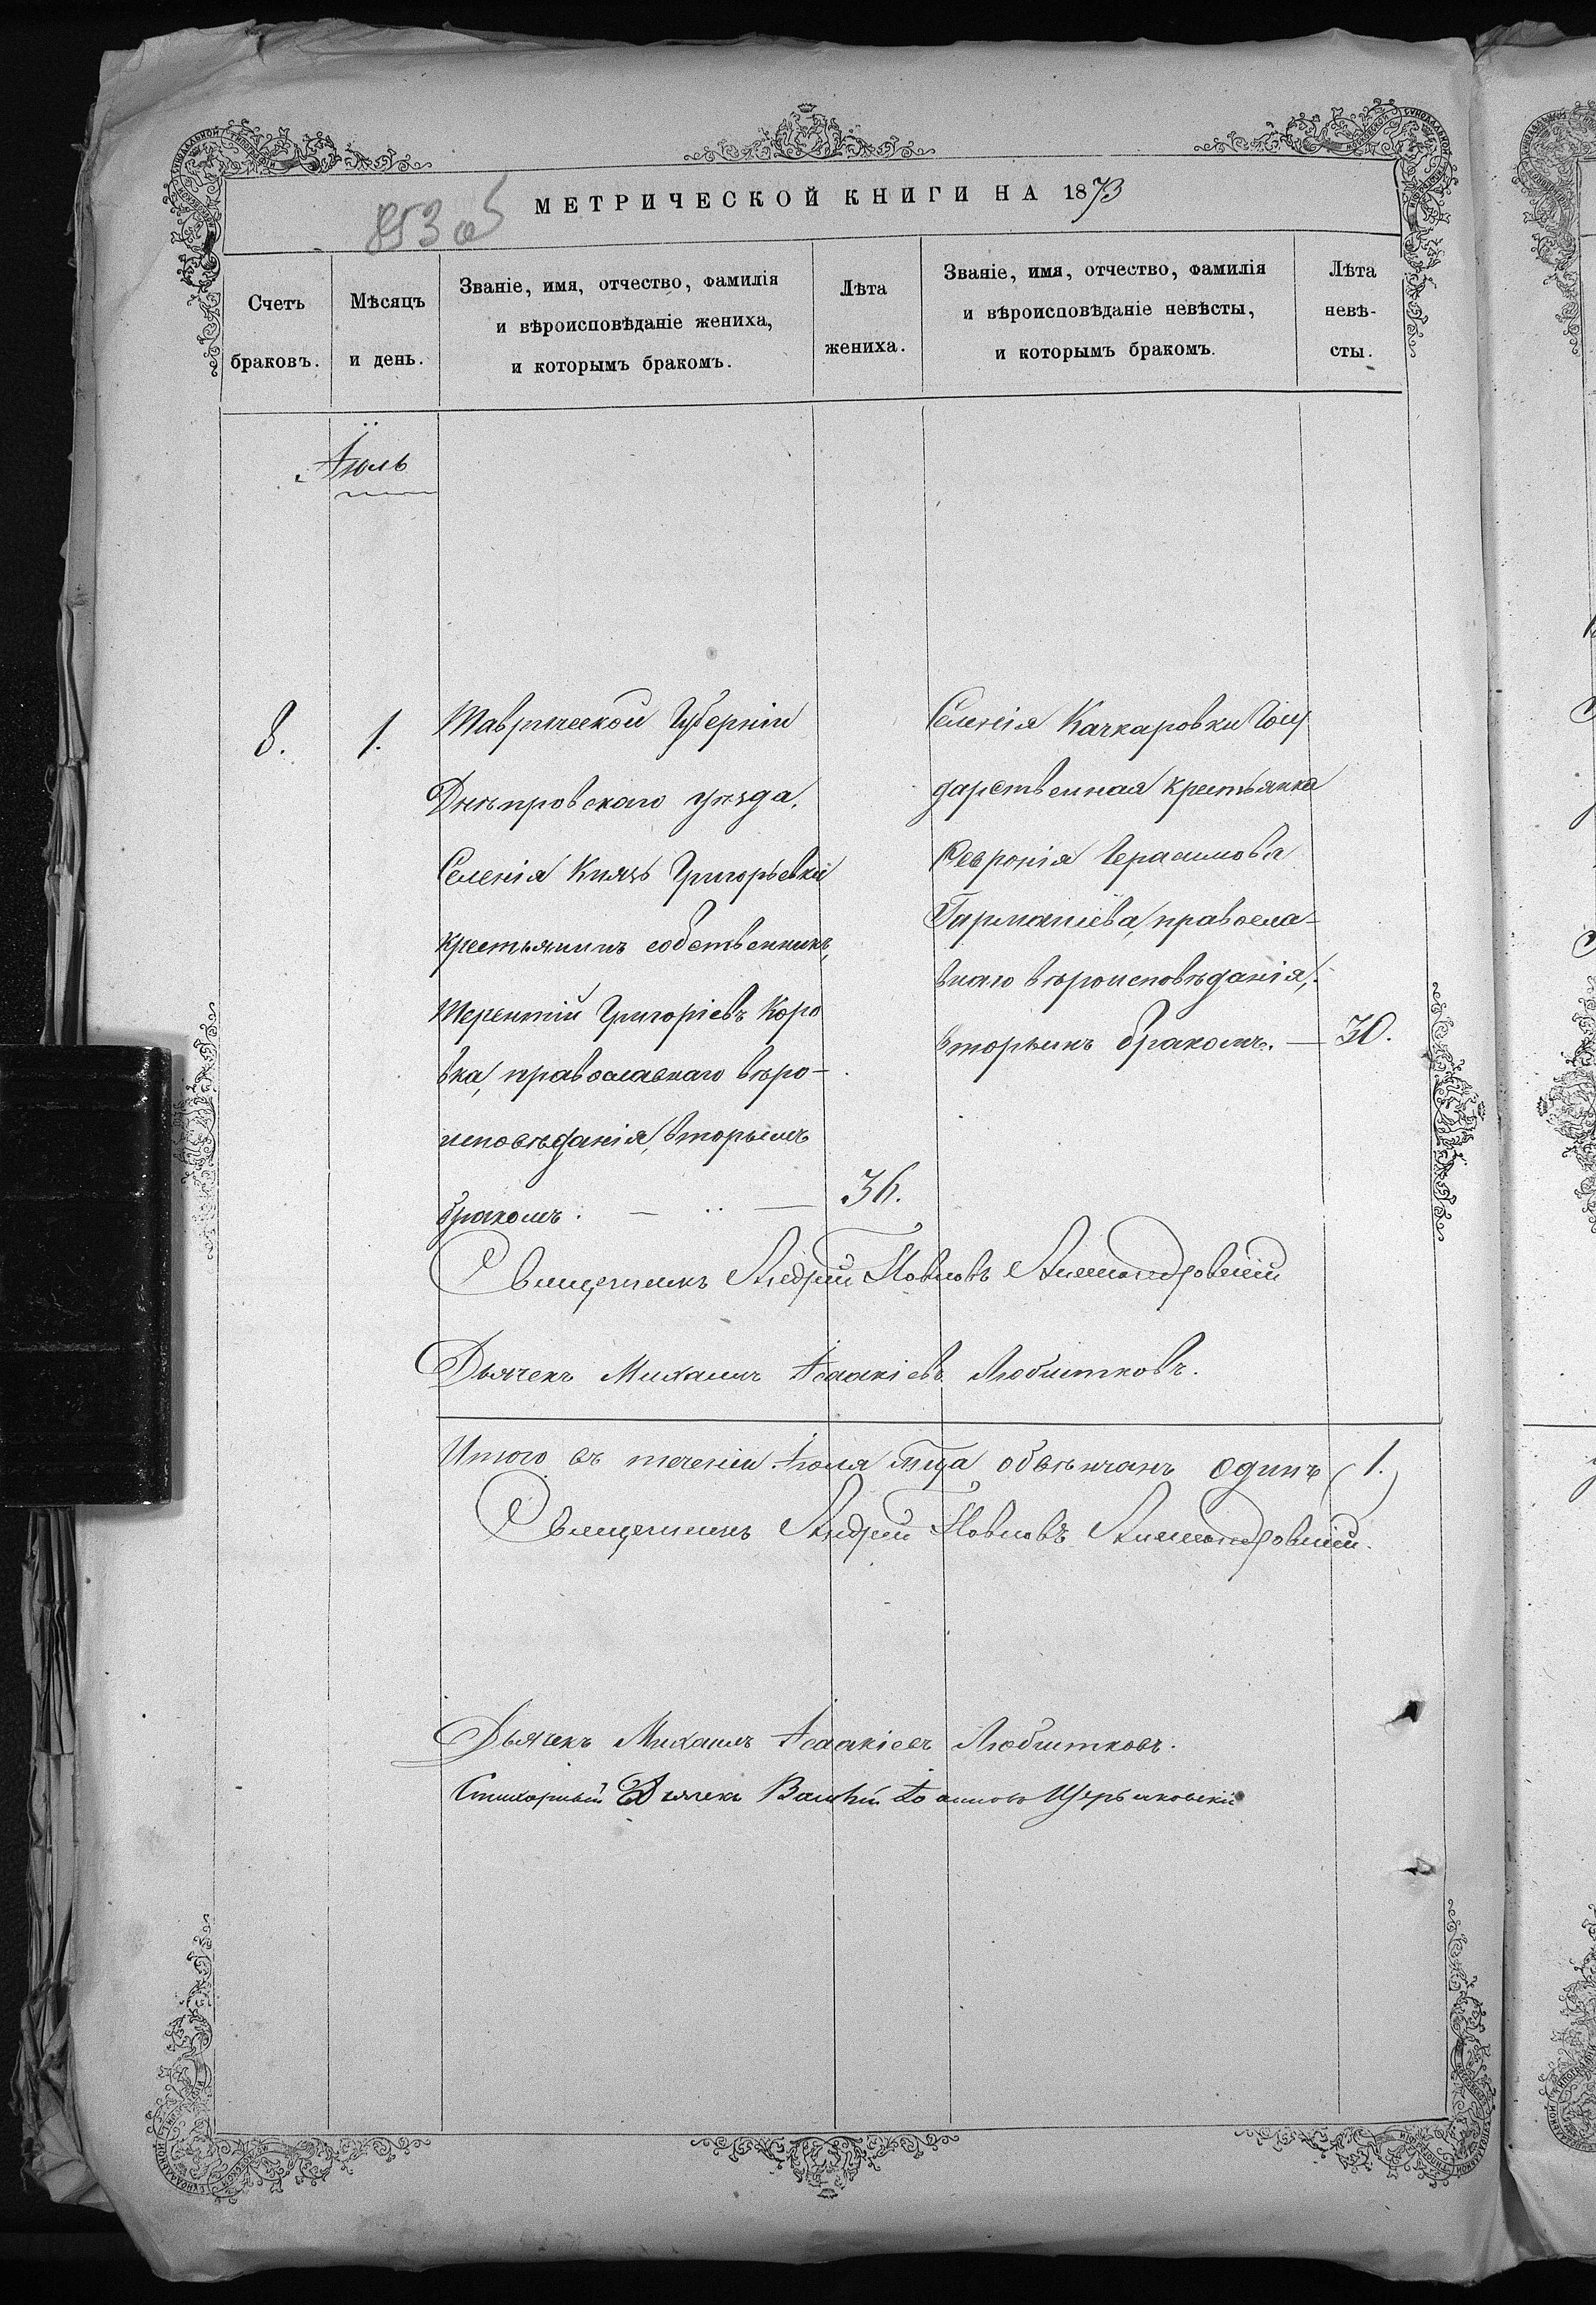 853 об
МЕТРИЧЕСКОЙ КНИГИ НА 1873
Счетъ браковъ.
Мѣсяцъ и день.
Званіе, имя, отчество, фамилія
и вѣроисповѣданіе жениха,
и которымъ бракомъ.
Лѣта жениха.
Званіе, имя, отчество, фамилія
и вѣроисповѣданіе невѣсты,
и которымъ бракомъ.
Лѣта невѣ-
сты.
Іюль
8.
1.
Таврической Губерніи
Днѣпровскаго уѣзда,
Селенія Князь Григорьевки
крестьянинъ собственникъ,
Терентій Григоріевъ Коро
вка, православнаго вѣро-
исповѣданія, вторымъ
бракомъ. —
36.
Селенія Качкаровки Госу
дарственная крестьянка
Феѵронія Герасимова
Гарманіева, правосла-
внаго вѣроисповѣданія,
вторымъ бракомъ. —
30.
Священникъ Андрей Павловъ Александровскій
Дьячекъ Михаилъ Ісаакіевъ Любитковъ.
Итого въ теченіи Іюля мѣца обвѣнчанъ одинъ (1.)
Священникъ Андрей Павловъ Александровскій.
Дьячекъ Михаилъ Ісаакіевъ Любитковъ.
Стихарный Дьячекъ Іоанновъ